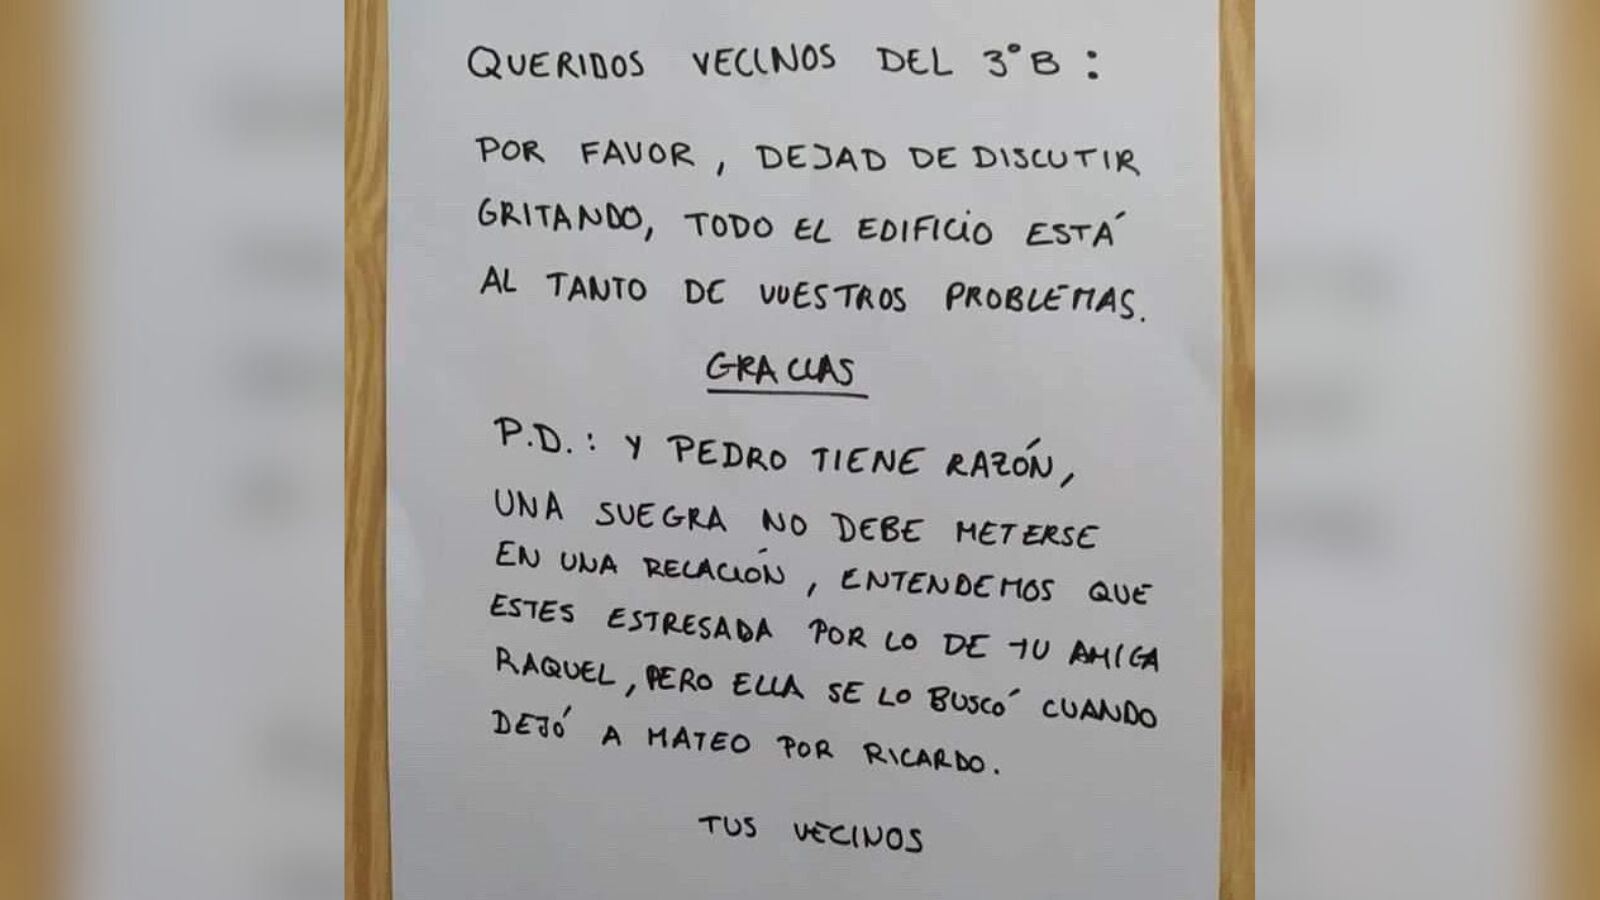 QUERIDOS VECINOS DEL 3°B:
POR FAVOR, DEJAD DE DISCUTIR
GRITANDO, TODO EL EDIFICIO ESTÁ
AL TANTO DE VUESTROS PROBLEMAS.
GRACIAS
P.D.: Y PEDRO TIENE RAZÓN,
UNA SUEGRA NO DEBE METERSE
EN UNA RELACIÓN, ENTENDEMOS QUE
ESTES ESTRESADA POR LO DE TU AMIGA
RAQUEL, PERO ELLA SE LO BUSCÓ CUANDO
DEJÓ A MATEO POR RICARDO.
TUS VECINOS